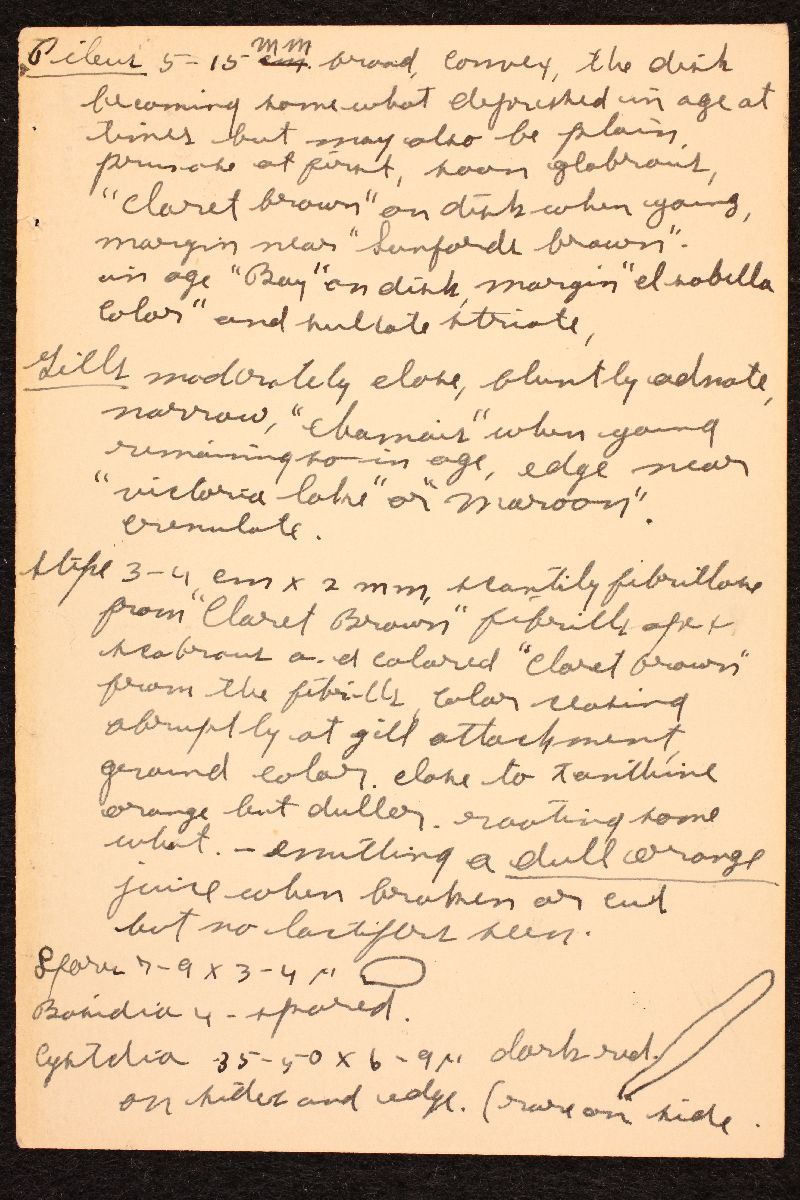 Pileus 5-15 mm broad, convex, the disk
becoming somewhat depressed in age at
times but may also be plain,
pruinose at first, soon glabrous,
"Claret brown" on disk when young,
margin near "Sanfords brown".
in age "Bay" on disk, margin "Isabella
color" and sulcate striate,
Gills moderately close, bluntly adnate,
narrow, "Chamois" when young
remaining so in age, edge near
"victoria lake" or "maroon".
crenulate.
Stipe 3-4 cm x 2 mm, scantily fibrillose
from "Claret Brown" fibrills, apex
scabrous and colored "Claret brown"
from the fibrills, color ceasing
abruptly at gill attachment,
ground color. close to Xanthine
orange but duller. rooting some
what. - emitting a dull orange
juice when broken or cut
but no lactifers seen.
Spores 7-9 x 3-4 μ
Basidia 4-spored.
Cystidia 35-50 x 6-9 μ dark red.
on sides and edge. (rare on side.